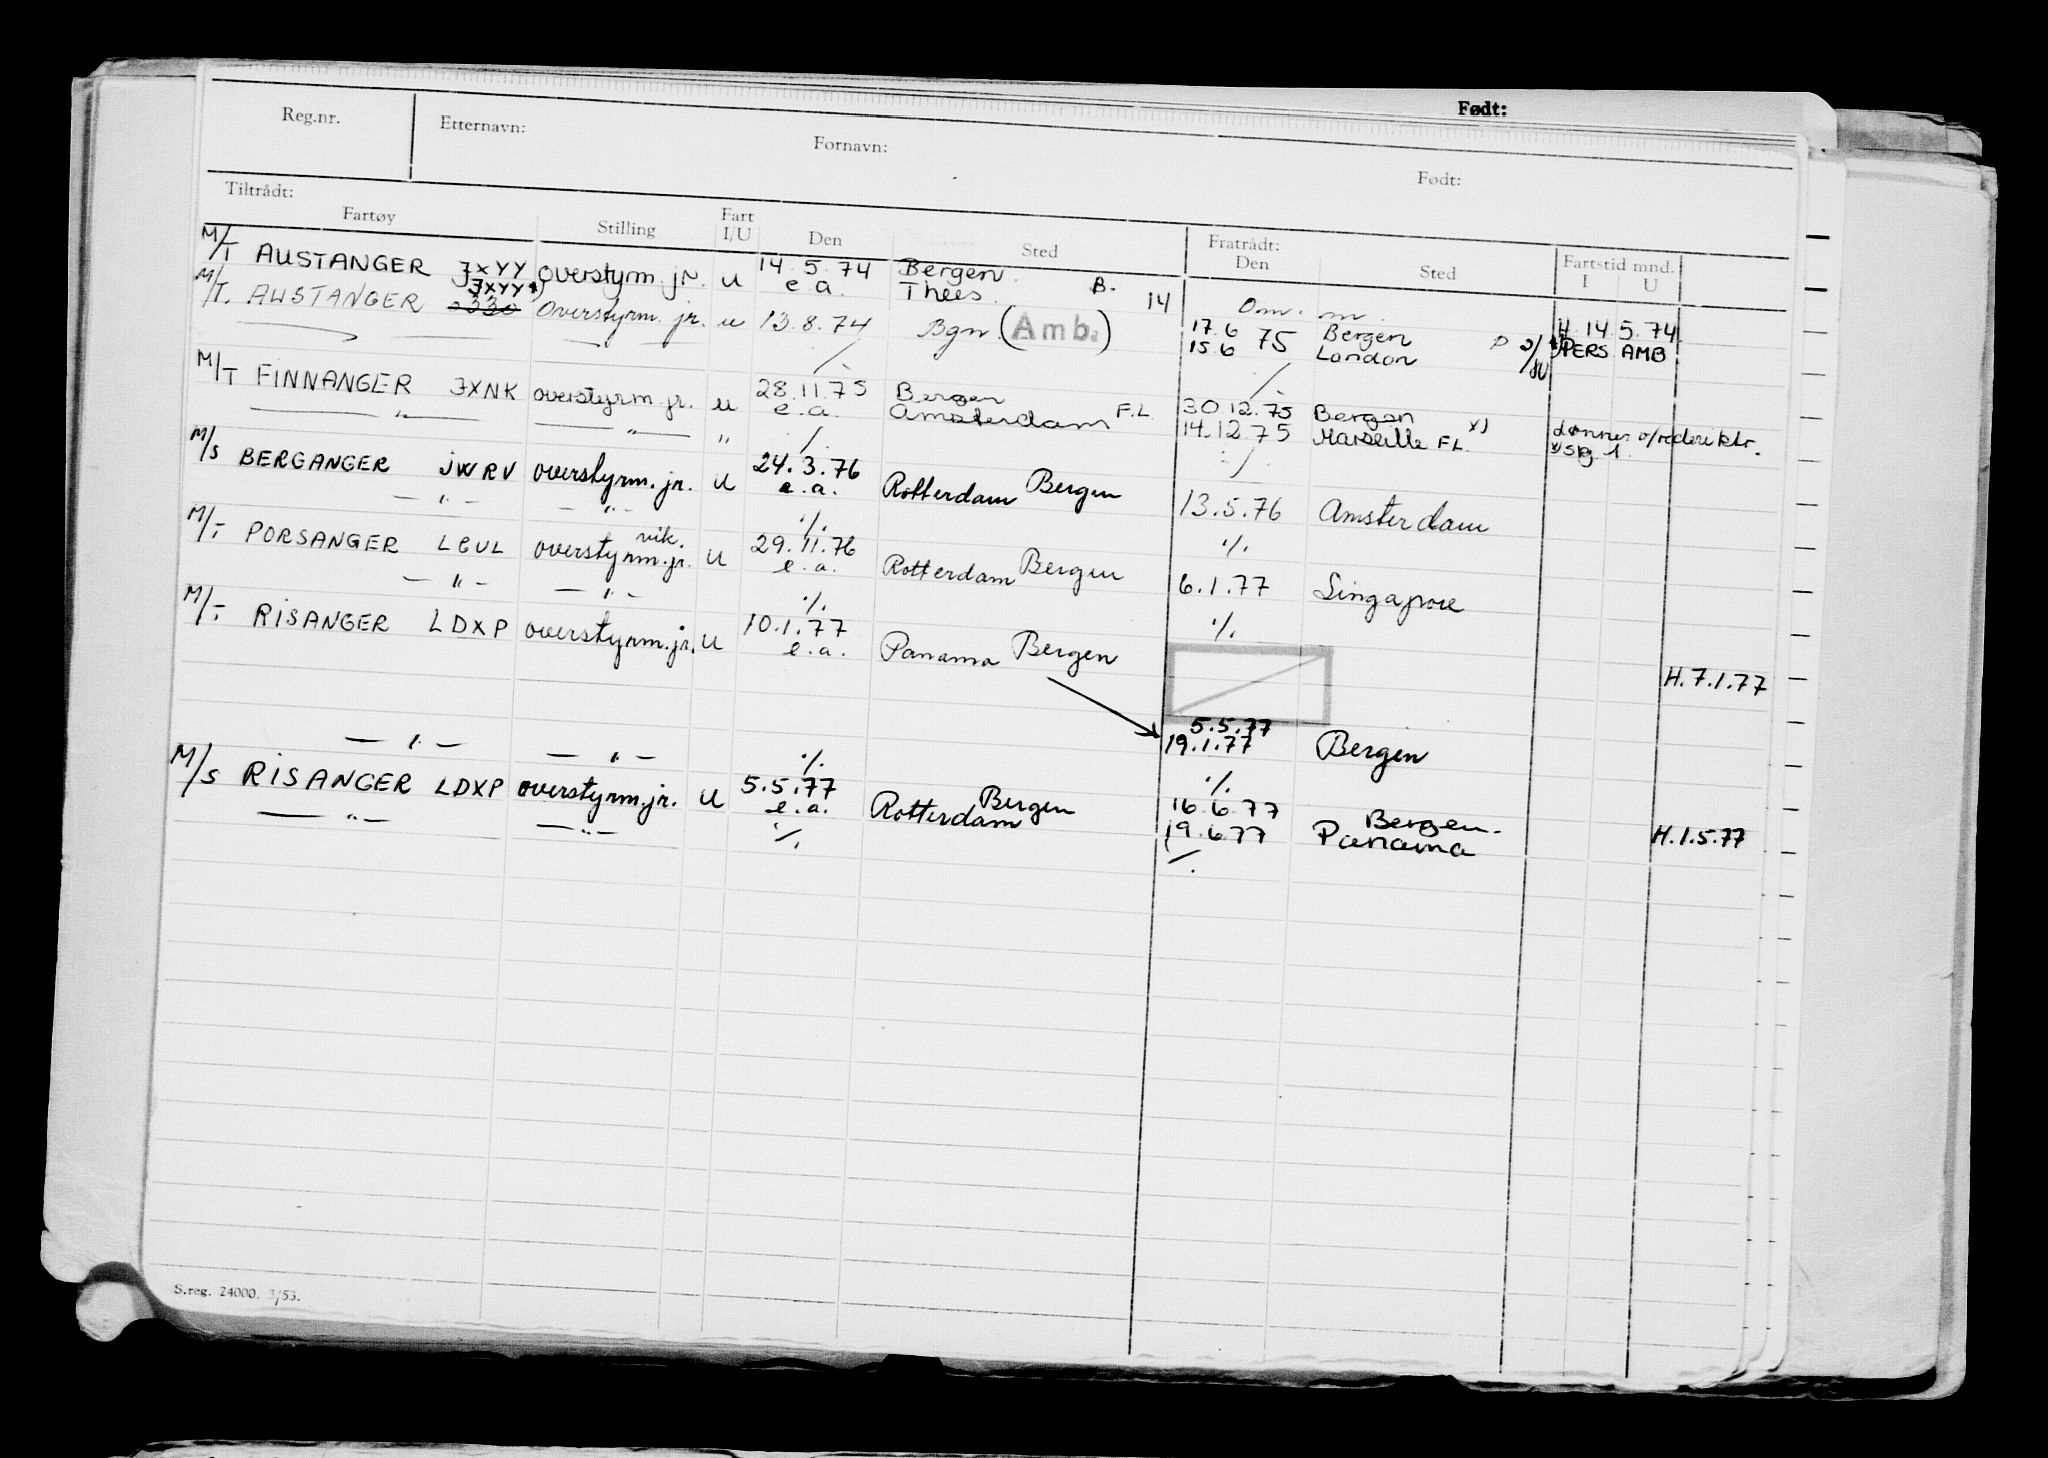 Født:
Reg.nr. Etternavn: Fornavn: Født:
Tiltrådt: Fratrådt:
Fartøy Stilling Fart I/U Den Sted Den Sted Fartstid mnd. I U
M/T AUSTANGER JXYY overstyrm. jr. u 14.5.74 Bergen
e.a. Thees. B. 14 Om. m. H. 14 5.74
M/T. AUSTANGER JXYY 2330 Overstyrm. jr. u 13.8.74 Bgn (Amb.) 17.6 75 Bergen PERS AMB
15.6 London
M/T FINNANGER JXNK overstyrm. jr. u 28.11.75 Bergen 30.12.75 Bergen
— " — — " — " e.a. Amsterdam F.L. 14.12.75 Marseille F.L. x)
M/S BERGANGER JWRV overstyrm. jr. u 24.3.76 Bergen
— " — — " — e.a. Rotterdam 13.5.76 Amsterdam
./. ./.
M/T PORSANGER LCUL overstyrm. jr. vik. u 29.11.76 Bergen
— " — — " — e.a. Rotterdam 6.1.77 Singapore
./. ./.
M/T RISANGER LDXP overstyrm. jr. u 10.1.77 Bergen
e.a. Panama H. 7.1.77
5.5.77
— " — — " — ./. 19.1.77 Bergen
M/S RISANGER LDXP overstyrm. jr. u 5.5.77 Bergen ./.
e.a. Rotterdam 16.6.77 Bergen.
— " — — " — ./. 19.6.77 Panama H. 1.5.77
./.
S.reg. 24000. 3/53.